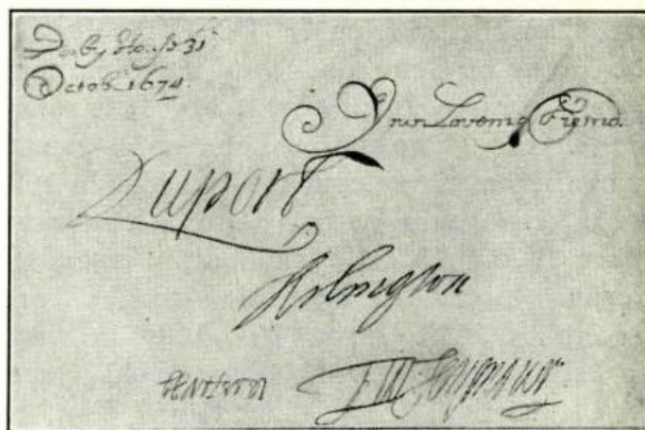 Derby Ho. ye 31
Octob. 1674.
Your Loveing Frends
Rupert
Arlington
Seymour